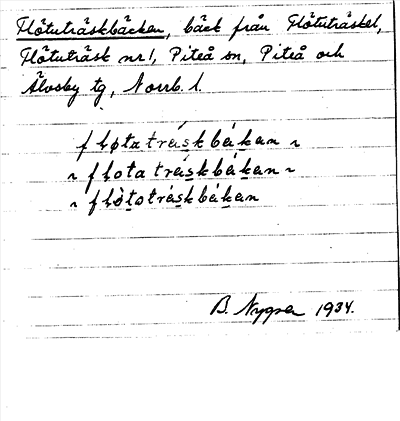 Flötuträskbäcken, bäck från Flötuträsket,
Flötuträsk nr 1, Piteå sn, Piteå och
Älvsby tg, Norrb. l.
flø̀tatráskbákan ~
~ flotatráskbákan ~
~ flø̀totráskbákan
B. Nygren 1934.